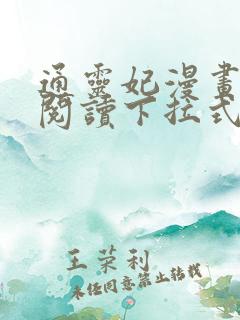 通靈妃漫畫
閱讀下拉式
王荣利
未经同意禁止转载